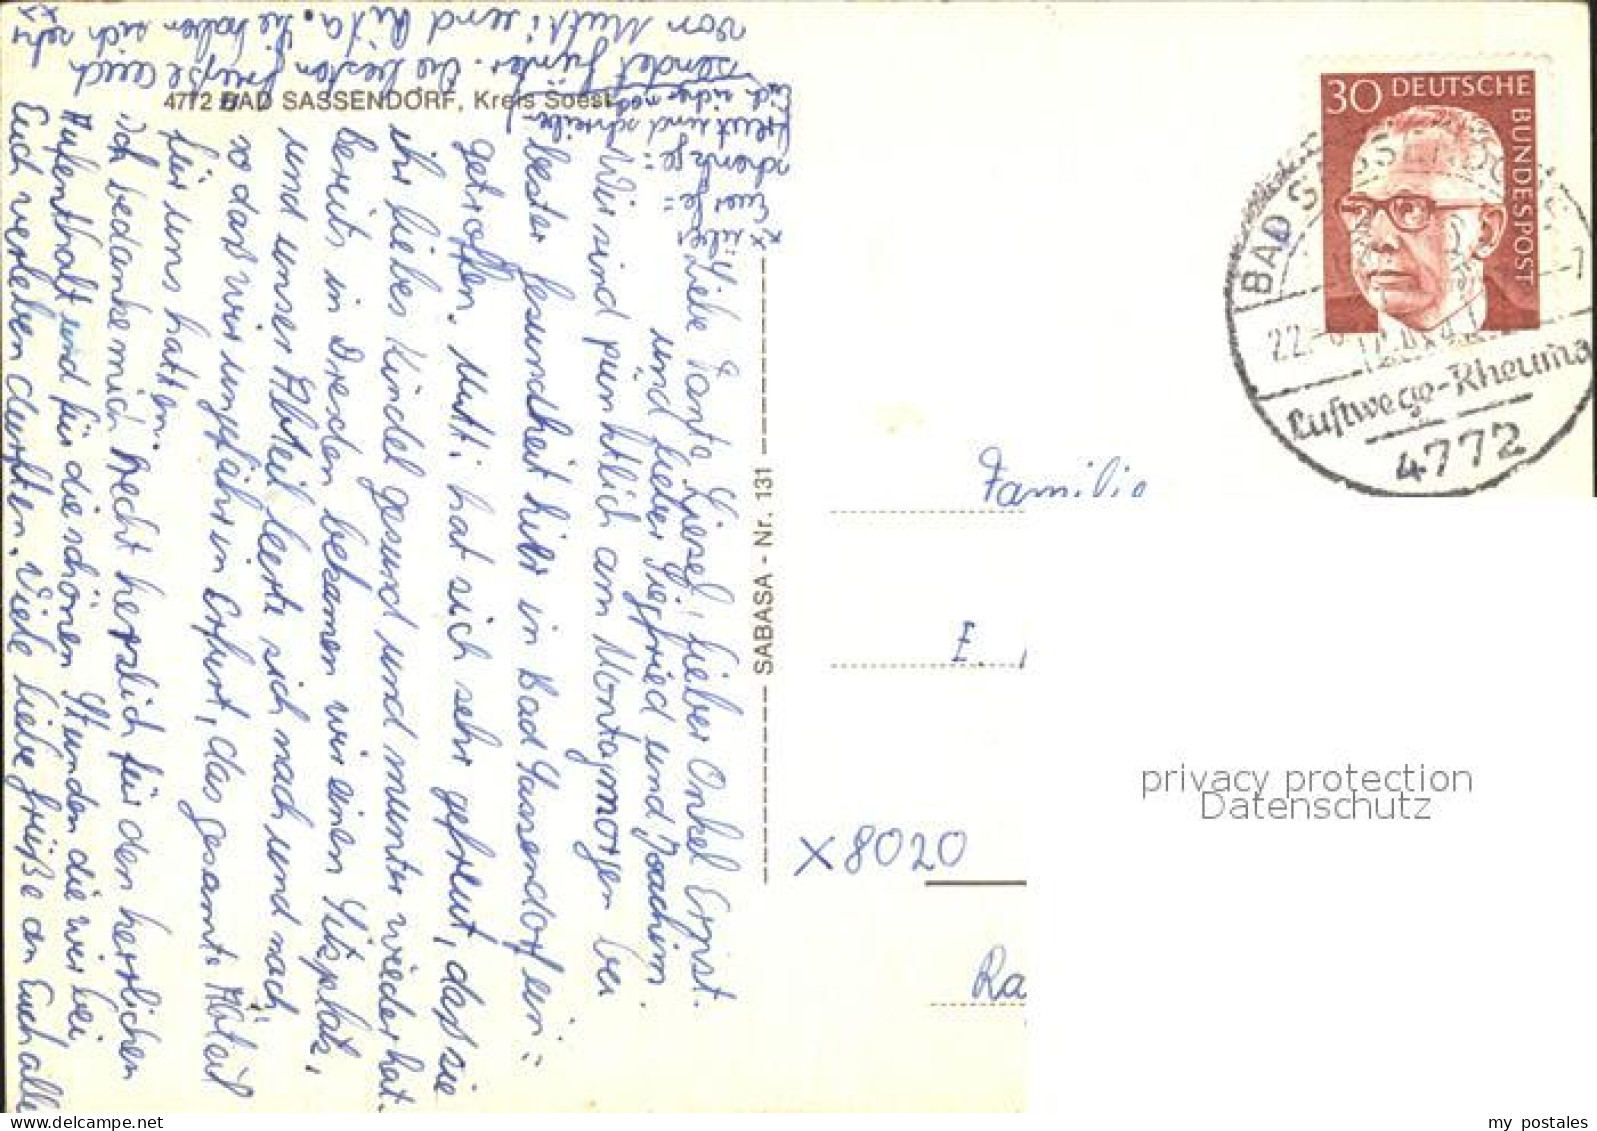 4772 BAD SASSENDORF, Kreis Soest
Liebe Tante Liesel, lieber Onkel Ernst.
und lieber Siegfried und Joachim
Wir sind pünktlich am Montagmorgen bei
bester Gesundheit hier in Bad Sassendorf ein=
getroffen. Mutti hat sich sehr gefreut, daß sie
ihr liebes Kindel gesund und munter wieder hat.
Bereits in Dresden bekamen wir einen Sitzplatz,
und unser Abteil leerte sich nach und nach,
so daß wir ungefähr in Erfurt, das gesamte Abteil
für uns hatten.
Ich bedanke mich recht herzlich für den herrlichen
Aufenthalt und für die schönen Stunden die wir bei
Euch verleben durften. Viele liebe Grüße an Euch alle
sendet Günter. Die besten Grüße auch
von Mutti und Rita. Sie haben sich sehr
xx über
Eure Ge=
schenke
gefreut und schreiben
Euch
SABASA - Nr. 131
30 DEUTSCHE
BUNDESPOST
BAD SASSENDORF
22.
Luftwege-Rheuma
4772
Familie
E.
X8020
Ra
privacy protection
Datenschutz
my postales